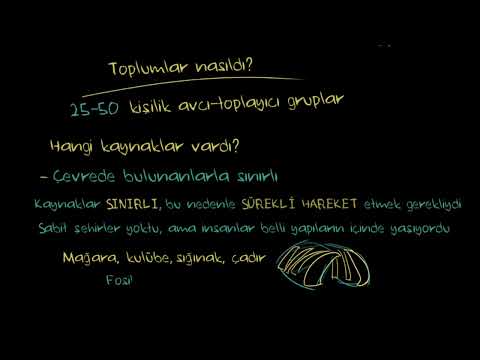 Toplumlar nasıldı?
25-50 kişilik avcı-toplayıcı gruplar
Hangi kaynaklar vardı?
- Çevrede bulunanlarla sınırlı
Kaynaklar SINIRLI, bu nedenle SÜREKLİ HAREKET etmek gerekliydi
Sabit şehirler yoktu, ama insanlar belli yapıların içinde yaşıyordu
Mağara, kulübe, sığınak, çadır
Fosi